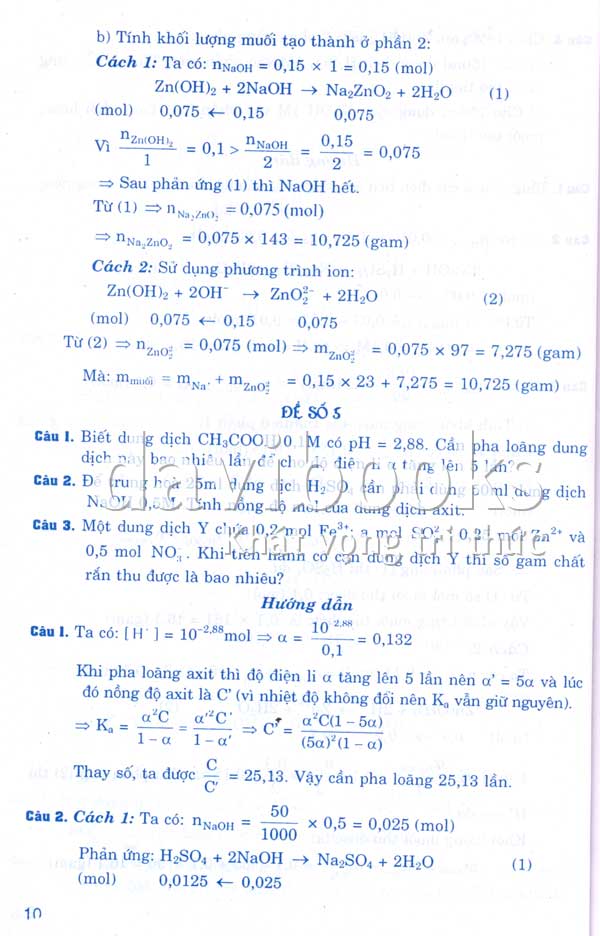 b) Tính khối lượng muối tạo thành ở phần 2:
Cách 1: Ta có: nNaOH = 0,15 × 1 = 0,15 (mol)
Zn(OH)₂ + 2NaOH → Na₂ZnO₂ + 2H₂O (1)
(mol) 0,075 ← 0,15 0,075
Vì nZn(OH)₂ / 1 = 0,1 > nNaOH / 2 = 0,15 / 2 = 0,075
⇒ Sau phản ứng (1) thì NaOH hết.
Từ (1) ⇒ nNa₂ZnO₂ = 0,075 (mol)
⇒ nNa₂ZnO₂ = 0,075 × 143 = 10,725 (gam)
Cách 2: Sử dụng phương trình ion:
Zn(OH)₂ + 2OH⁻ → ZnO₂²⁻ + 2H₂O (2)
(mol) 0,075 ← 0,15 0,075
Từ (2) ⇒ nZnO₂²⁻ = 0,075 (mol) ⇒ mZnO₂²⁻ = 0,075 × 97 = 7,275 (gam)
Mà: mmuối = mNa⁺ + mZnO₂²⁻ = 0,15 × 23 + 7,275 = 10,725 (gam)
ĐỀ SỐ 5
Câu 1. Biết dung dịch CH₃COOH 0,1M có pH = 2,88. Cần pha loãng dung
dịch này bao nhiêu lần để cho độ điện li α tăng lên 5 lần?
Câu 2. Để trung hoà 25ml dung dịch H₂SO₄ cần phải dùng 50ml dung dịch
NaOH 0,5M. Tính nồng độ mol của dung dịch axit.
Câu 3. Một dung dịch Y chứa 0,2 mol Fe³⁺; a mol SO₄²⁻; mol Zn²⁺ và
0,5 mol NO₃⁻. Khi tiến hành cô cạn dung dịch Y thì số gam chất
rắn thu được là bao nhiêu?
davibooks
Khát vọng tri thức
Hướng dẫn
Câu 1. Ta có: [H⁺] = 10⁻²,⁸⁸mol ⇒ α = 10⁻²,⁸⁸ / 0,1 = 0,132
Khi pha loãng axit thì độ điện li α tăng lên 5 lần nên α' = 5α và lúc
đó nồng độ axit là C' (vì nhiệt độ không đổi nên Kₐ vẫn giữ nguyên).
⇒ Kₐ = α²C / 1 − α = α'²C' / 1 − α' ⇒ C' = α²C(1 − 5α) / (5α)²(1 − α)
Thay số, ta được C / C' = 25,13. Vậy cần pha loãng 25,13 lần.
Câu 2. Cách 1: Ta có: nNaOH = 50 / 1000 × 0,5 = 0,025 (mol)
Phản ứng: H₂SO₄ + 2NaOH → Na₂SO₄ + 2H₂O (1)
(mol) 0,0125 ← 0,025
10